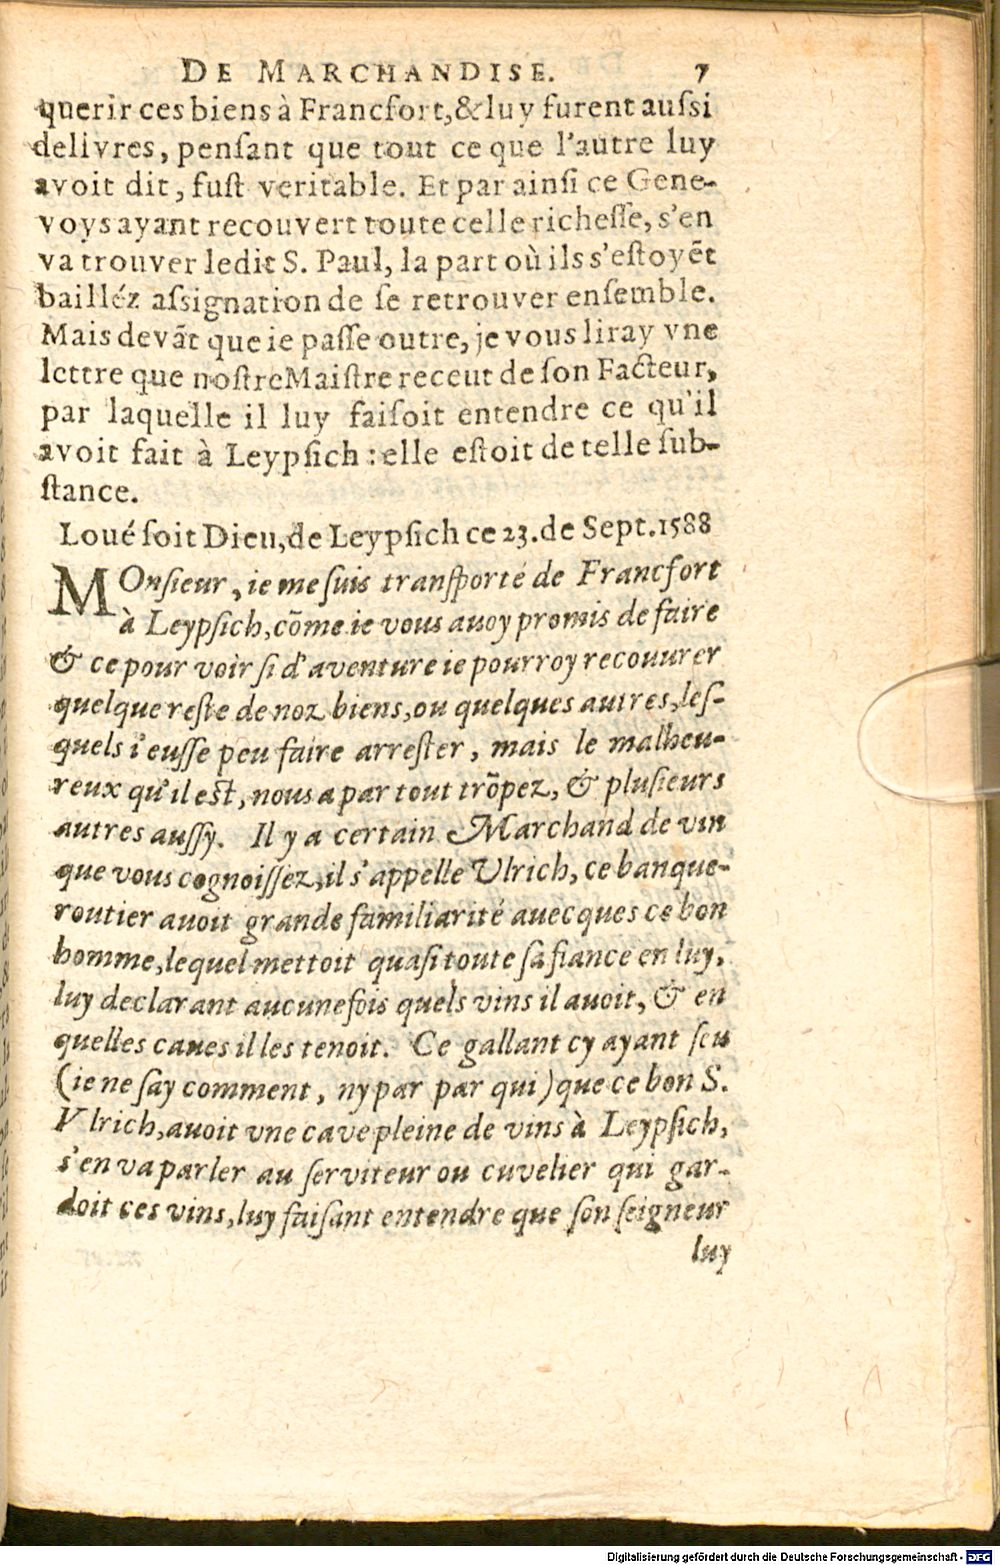 DE MARCHANDISE. 7
querir ces biens à Francfort, & luy furent auſsi
delivres, penſant que tout ce que l'autre luy
avoit dit, fuſt veritable. Et par ainſi ce Gene-
voys ayant recouvert toute celle richeſſe, s'en
va trouver ledit S. Paul, la part où ils s'eſtoyẽt
bailléz aſsignation de ſe retrouver enſemble.
Mais devãt que ie paſſe outre, je vous liray vne
lettre que noſtre Maiſtre receut de ſon Facteur,
par laquelle il luy faiſoit entendre ce qu'il
avoit fait à Leypſich : elle eſtoit de telle ſub-
ſtance.
Loué ſoit Dieu, de Leypſich ce 23. de Sept. 1588
MOnsieur, ie me ſuis tranſporté de Francfort
à Leypſich, cõme ie vous auoy promis de faire
& ce pour voir ſi d'aventure ie pourroy recouurer
quelque reſte de noz biens, ou quelques autres, leſ-
quels i'euſſe peu faire arreſter, mais le malheu-
reux qu'il eſt, nous a par tout trõpez, & pluſieurs
autres auſſy. Il y a certain Marchand de vin
que vous cognoiſſez, il s'appelle Vlrich, ce banque-
routier auoit grande familiarité auecques ce bon
homme, lequel mettoit quaſi toute ſa fiance en luy,
luy declarant aucunefois quels vins il auoit, & en
quelles caues il les tenoit. Ce gallant cy ayant ſeu
(ie ne ſay comment, ny par par qui) que ce bon S.
Vlrich, auoit vne cave pleine de vins à Leypſich,
s'en va parler au ſerviteur ou cuvelier qui gar-
doit ces vins, luy faiſant entendre que ſon ſeigneur
luy
Digitalisierung gefördert durch die Deutsche Forschungsgemeinschaft - DFG